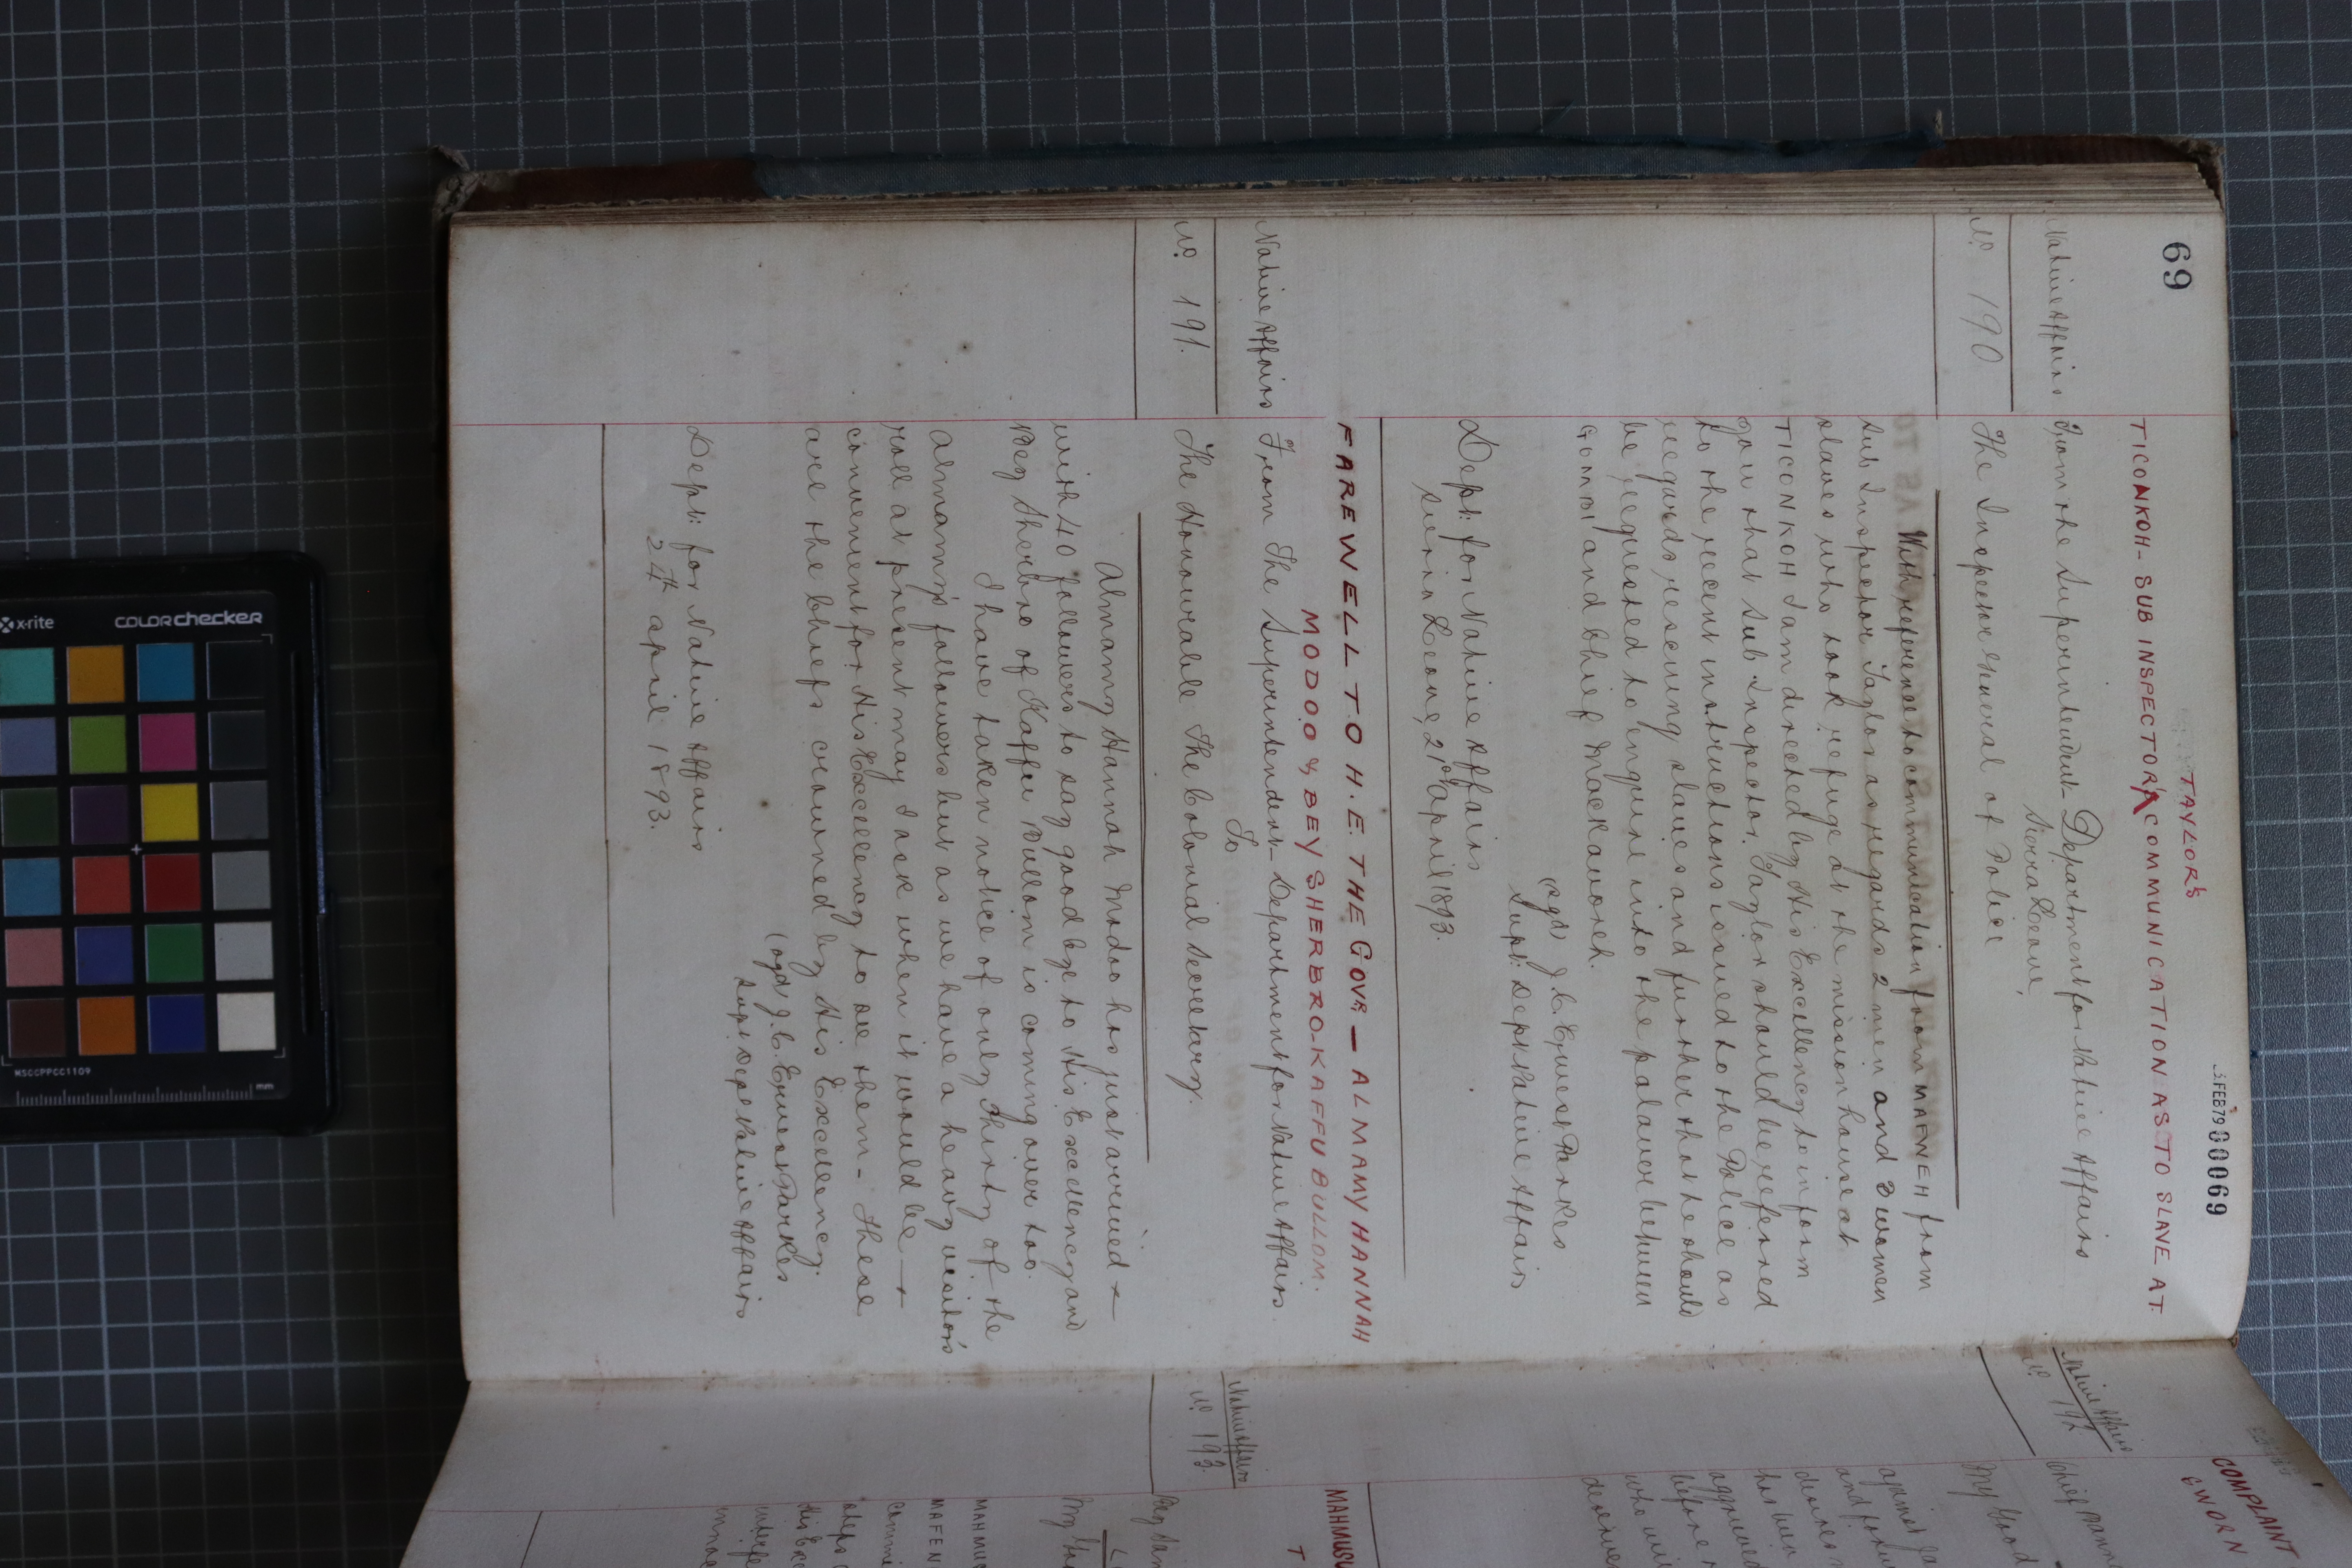 69
.5 FEB 79 00069
TAYLOR'S
TICONKOH - SUB INSPECTOR COMMUNICATION AS TO SLAVE AT.
Native Affairs
No 190
From the Superintendent Department for Native Affairs
Sierra Leone,
The Inspector General of Police
With reference to communication from MAFWEH from
Sub Inspector Taylor as regards 2 men and 3 women
slaves who took refuge at the mission house at
TICONKOH I am directed by His Excellency to inform
you that Sub Inspector Taylor should be referred
to the recent instructions issued to the Police as
regards rescuing slaves and further that he should
be requested to enquire into the palaver between
GOMBI and Chief Mackavoreh.
(sgd) J. C. Ernest Parkes
Supt: Dept Native Affairs
Dept: for Native Affairs
Sierra Leone, 21st April 1893.
FAREWELL TO H.E. THE GOVR — ALMAMY HANNAH
MODOO & BEY SHERBRO-KAFFU BULLOM.
Native Affairs
No 191.
From The Superintendent - Department for Native Affairs.
To
The Honourable The Colonial Secretary.
Almamy Hannah Modoo has just arrived
with 40 followers to say good bye to His Excellency and
Bey Sherbro of Kaffu Bullom is coming over too.
I have taken notice of only Thirty of the
Almamy's followers but as we have a heavy visitors
roll at present may I ask when it would be
convenient for His Excellency to see them - These
are the Chiefs crowned by His Excellency.
(sgd) J. C. Ernest Parkes
Supt Dept Native Affairs
Dept: for Native Affairs
24th April 1893.
Native Affairs
No 192
COMPLAINT
Chief
My Good
against
and
has been
aggrieved
before
Native Affairs
No 193.
T
Bey
MAHMUD
MAFEN
His Exc
x-rite
colorchecker
MSCCPPCC1109
mm